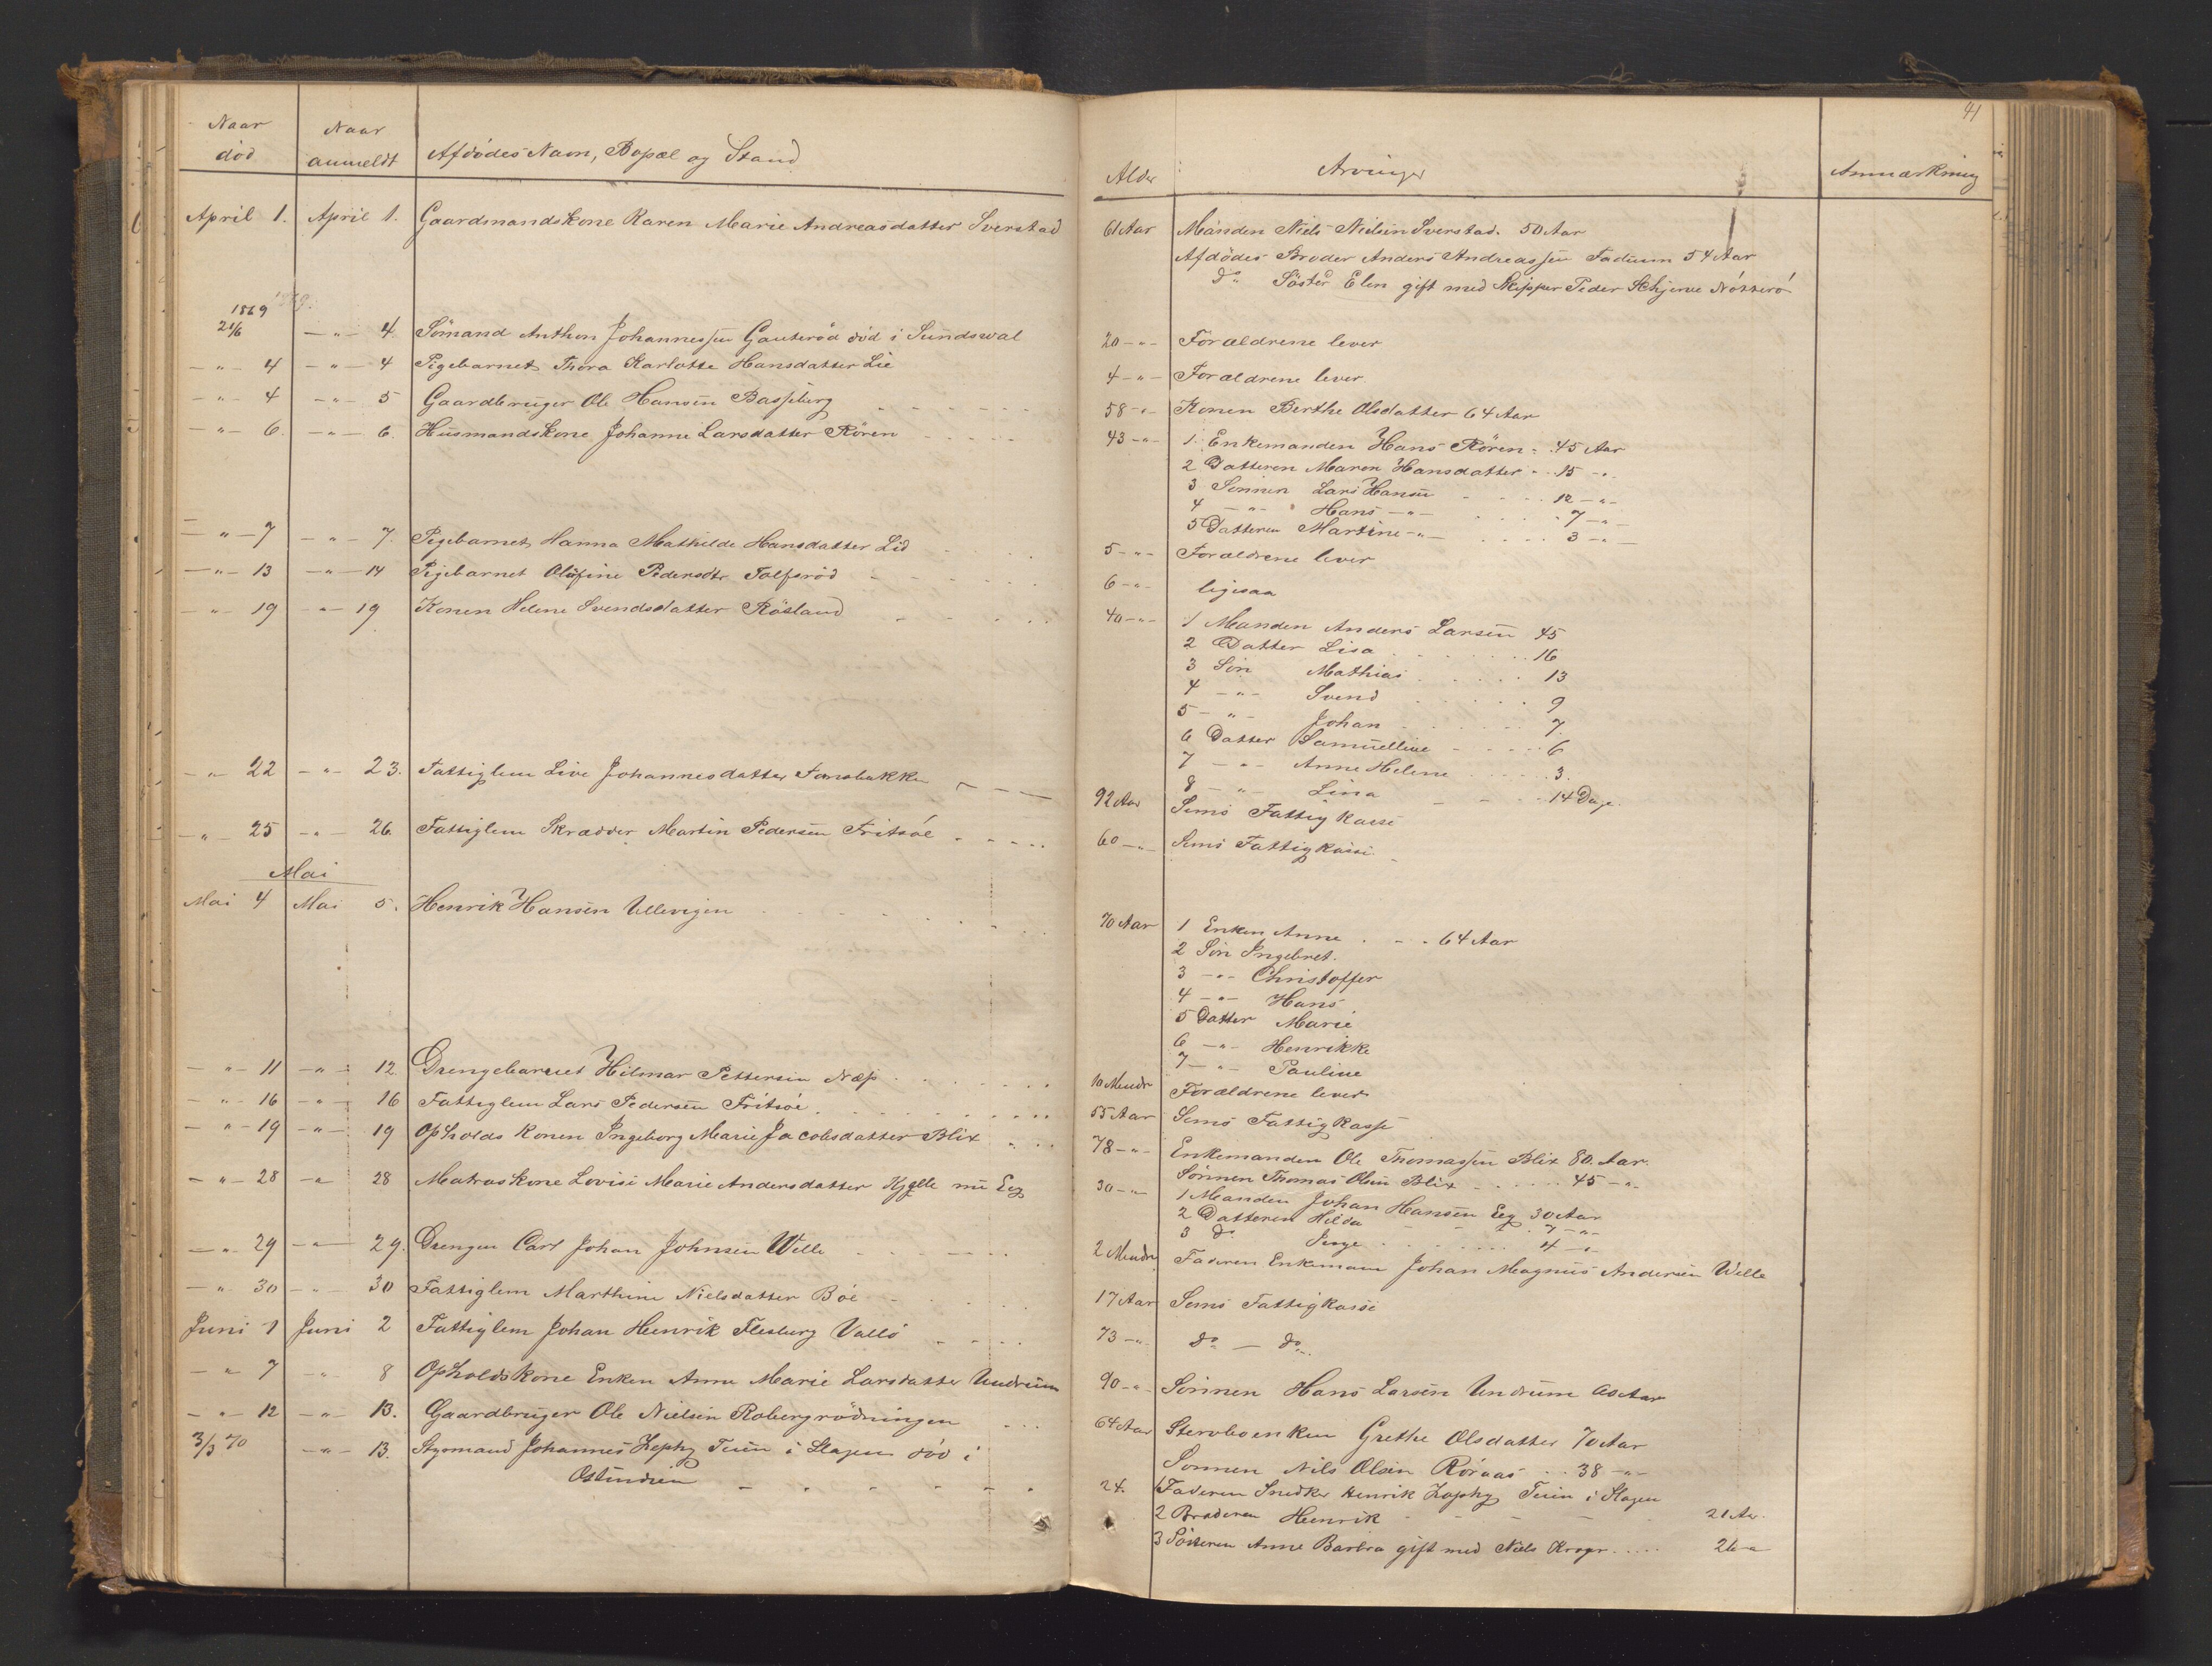 41
Naar død
Naar anmeldt
Afdødes Navn, Bopæl og Stand
Alder
Arvinger
Anmærkning
April 1. April 1. Gaardmandskone Karen Marie Andreasdatter Sverstad 61 Aar Manden Niels Nielsen Sverstad. 50 Aar
Afdødes Broder Anders Andreassen Fadum 54 Aar
do Søster Elen gift med Skipper Peder Schjerve Nøtterø
1869
21/6 -"- 4. Sømand Anthon Johannessen Gauterød død i Sundswal 20 -"- Forældrene lever
-"- 4 -"- 4 Pigebarnet Thora Karlotte Hansdatter Lie 4 -"- Forældrene lever
-"- 4 -"- 5 Gaardbruger Ole Hansen Basseberg 58 -"- Konen Berthe Olsdatter 64 Aar
-"- 6. -"- 6. Husmandskone Johanne Larsdatter Røren 43 -"- 1. Enkemanden Hans Røren 45 Aar
2 Datteren Maren Hansdatter 15 -"-
3 Sønnen Lars Hansen 12 -"-
4 -"- Hans -"- 7 -"-
5 Datteren Martine -"- 3 -"-
-"- 7 -"- 7. Pigebarnet Hanna Mathilde Hansdatter Lid 5 -"- Forældrene lever
-"- 13 -"- 14 Pigebarnet Olufine Pedersdtr Tolfsrød 6 -"- ligesaa
-"- 19 -"- 19 Konen Helene Svendsdatter Røsland 40 -"- 1 Manden Anders Larsen 45
2 Datter Lisa 16
3 Søn Mathias 13
4 -"- Svend 9
5 -"- Johan 7.
6 Datter Samuelline 6
7 -"- Anne Helene 3.
8 -"- Lina 14 Dage.
-"- 22 -"- 23. Fattiglem Live Johannesdatter Fonsbakken 92 Aar Sems Fattigkasse
-"- 25 -"- 26 Fattiglem Skrædder Martin Pedersen Fritsøe 60 -"- Sems Fattigkasse.
Mai
Mai 4 Mai 5. Henrik Hansen Ullevigen 70 Aar 1 Enken Anne 64 Aar
2 Søn Ingebret.
3 -"- Christoffer
4 -"- Hans
5 Datter Marie
6 -"- Henrikke
7 -"- Pauline
-"- 11 -"- 12 Drengebarnet Hilmar Pettersen Næss 10 Mndr Forældrene lever
-"- 16 -"- 16 Fattiglem Lars Pedersen Fritsøe 55 Aar Sems Fattigkasse
-"- 19 -"- 19 Opholds Konen Ingeborg Marie Jacobsdatter Blix 78 -"- Enkemanden Ole Thomassen Blix 80. Aar.
Sønnen Thomas Olsen Blix 45 -"-
-"- 28 -"- 28 Matroskone Lovise Marie Andersdatter Kjælle nu Eeg 30 -"- 1 Manden Johan Hansen Eeg 30 Aar
2 Datteren Hilda 7 -"-
3 do Inge 4 -"-
-"- 29 -"- 29. Drengen Carl Johan Johnsen Welle 2 Mndr Faderen Enkemann Johan Magnus Andersen Welle
-"- 30 -"- 30 Fattiglem Marthine Nielsdatter Bøe 17 Aar Sems Fattigkasse
Juni 1 Juni 2 Fattiglem Johan Henrik Flesberg Vallø 73 -"- do — do.
-"- 7 -"- 8 Opholdskone Enken Anne Marie Larsdatter Undrum 90 -"- Sønnen Hans Larsen Undrum Aar
-"- 12 -"- 13. Gaardbruger Ole Nielsen Robergrødningen 64 Aar Stervboenken Grethe Olsdatter 70 Aar
Sønnen Nils Olsen Røraas 38 -"-
3/3 70 -"- 13. Styrmand Johannes Zephy Tuen i Slagen død i 24. 1 Faderen Snedker Henrik Zephy Tuen i Slagen
Ostindien 2 Broderen Henrik 21 Aar.
3 Søsteren Anne Barbra gift med Niels Kroger 26 -"-